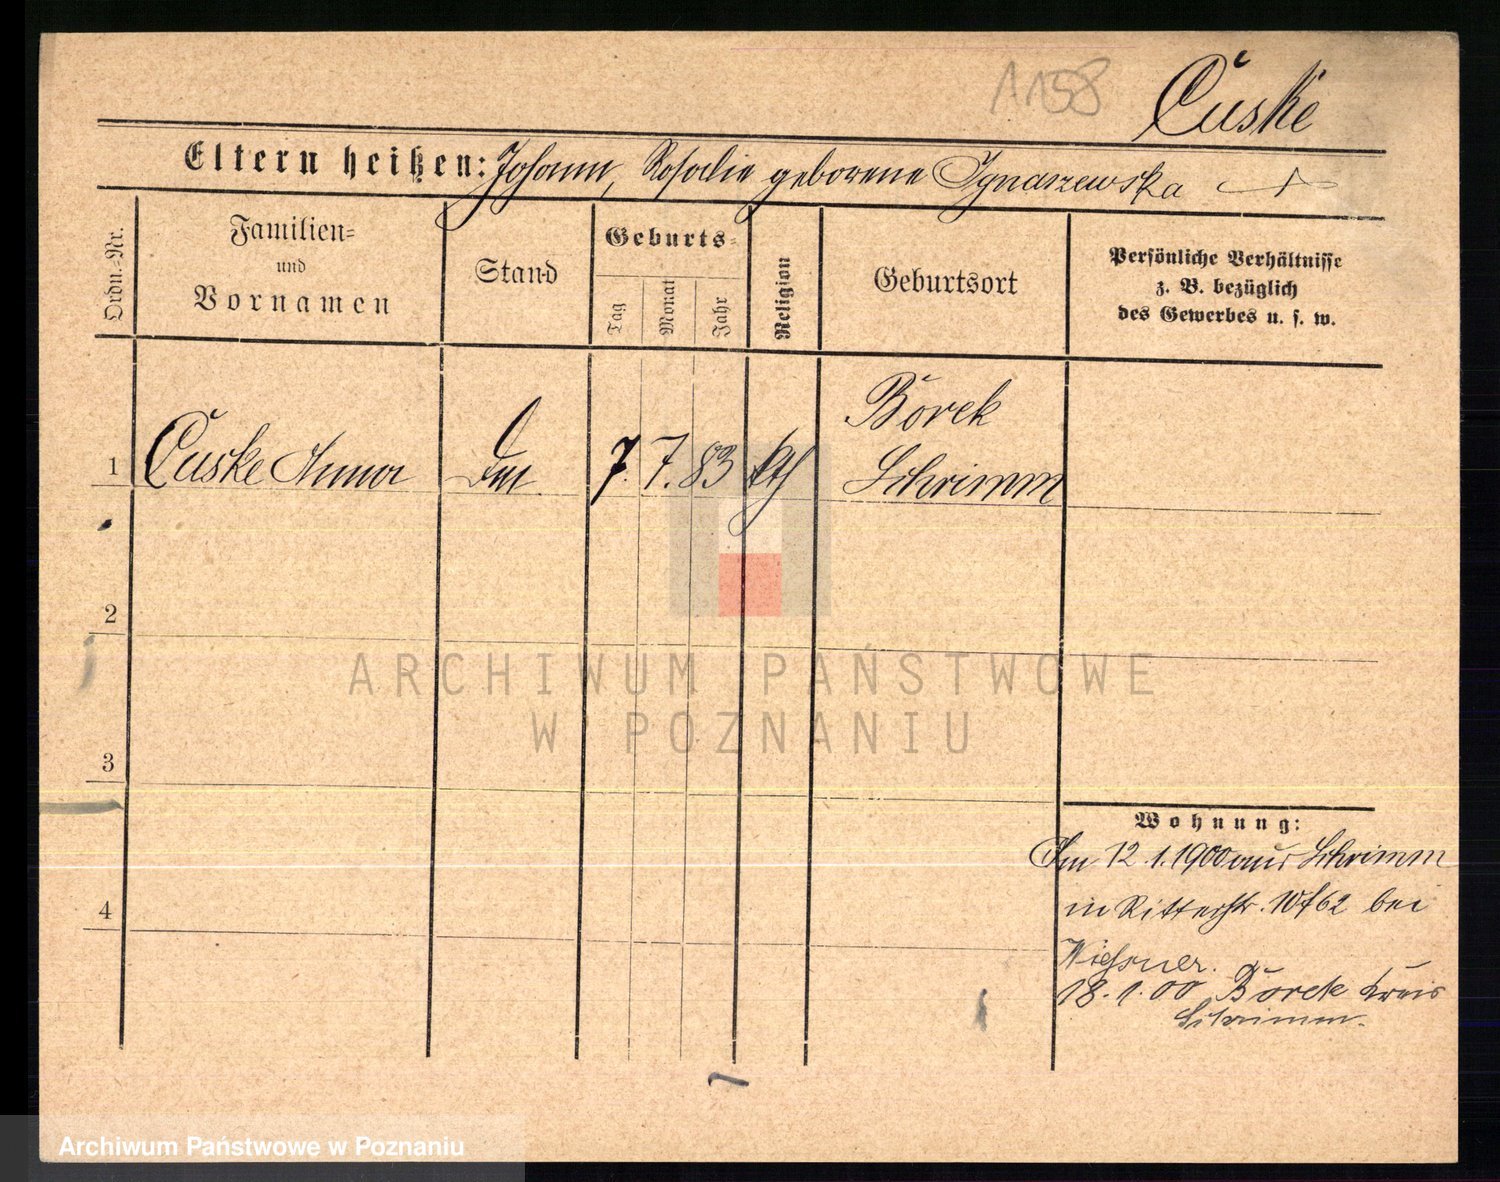 1158
Cuske
Eltern heißen: Johann, Rosalie geborene Ignaszewska
Ordn.-Nr.
Familien-
und
Vornamen
Stand
Geburts-
Tag
Monat
Jahr
Religion
Geburtsort
Persönliche Verhältnisse
z. B. bezüglich
des Gewerbes u. s. w.
Borek
1 Cuske Anna 7. 7. 83 kth Schrimm
2
ARCHIWUM PAŃSTWOWE
W POZNANIU
3
Wohnung:
Am 12.1.1900 aus Schrimm
4
in Ritterstr. bei
18.1.00 Borek Kreis
Schrimm.
Archiwum Państwowe w Poznaniu